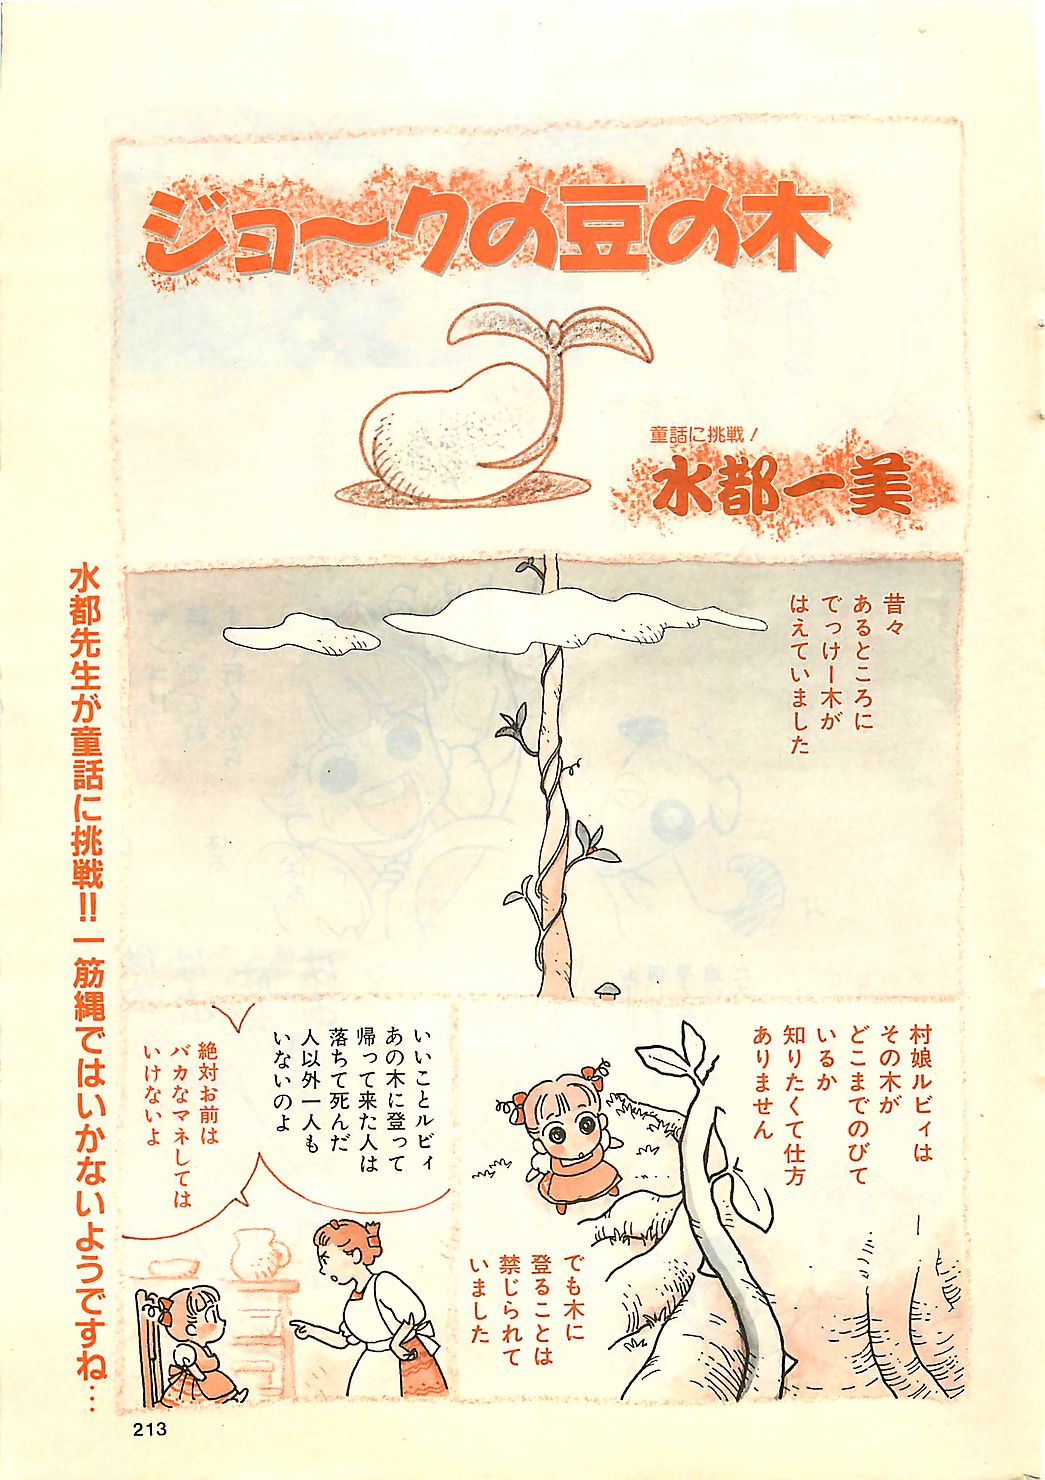 ジョ〜クの豆の木
童話に挑戦！
水都一美
昔々
あるところに
でっけー木が
はえていました
村娘ルビィは
その木が
どこまでのびて
いるか
知りたくて仕方
ありません
でも木に
登ることは
禁じられて
いました
いいことルビィ
あの木に登って
帰って来た人は
落ちて死んだ
人以外一人も
いないのよ
絶対お前は
バカなマネしては
いけないよ
水都先生が童話に挑戦!!一筋縄ではいかないようですね…
213